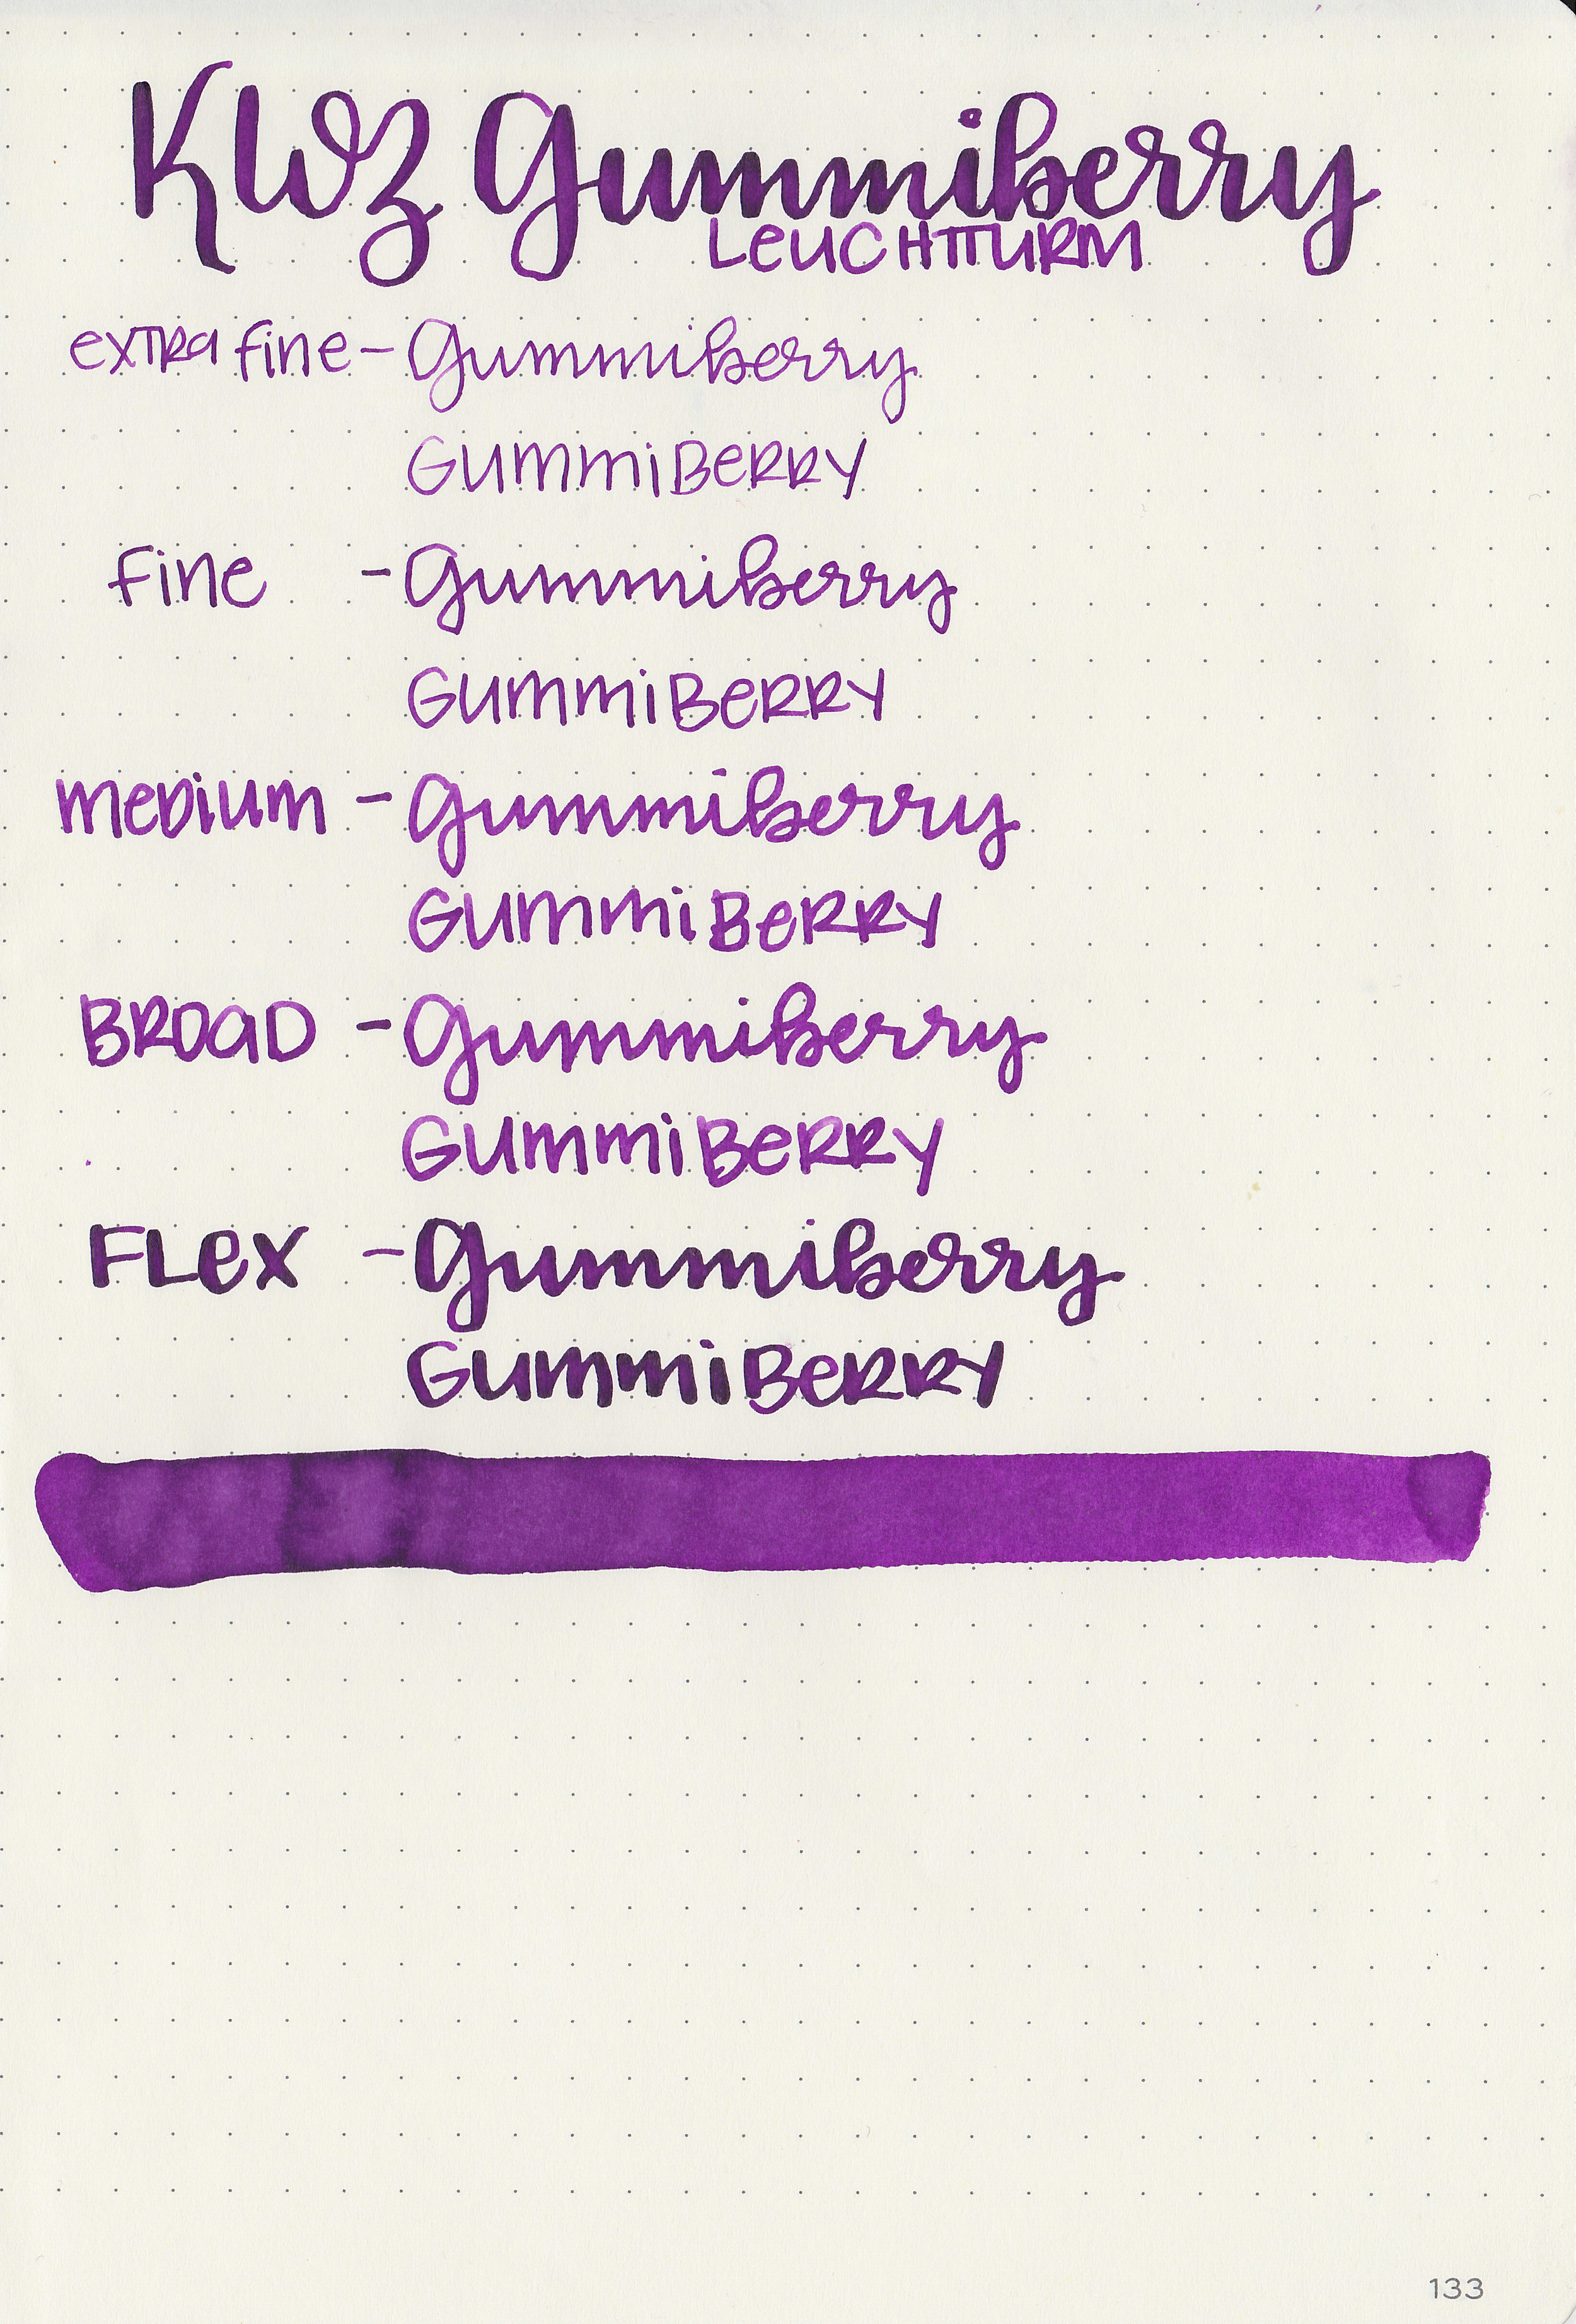 KWZ Gummiberry
LEUCHTTURM
extra fine - Gummiberry
GUMMIBERRY
fine - Gummiberry
GUMMIBERRY
medium - Gummiberry
GUMMIBERRY
BROAD - Gummiberry
GUMMIBERRY
FLEX - Gummiberry
GUMMIBERRY
133